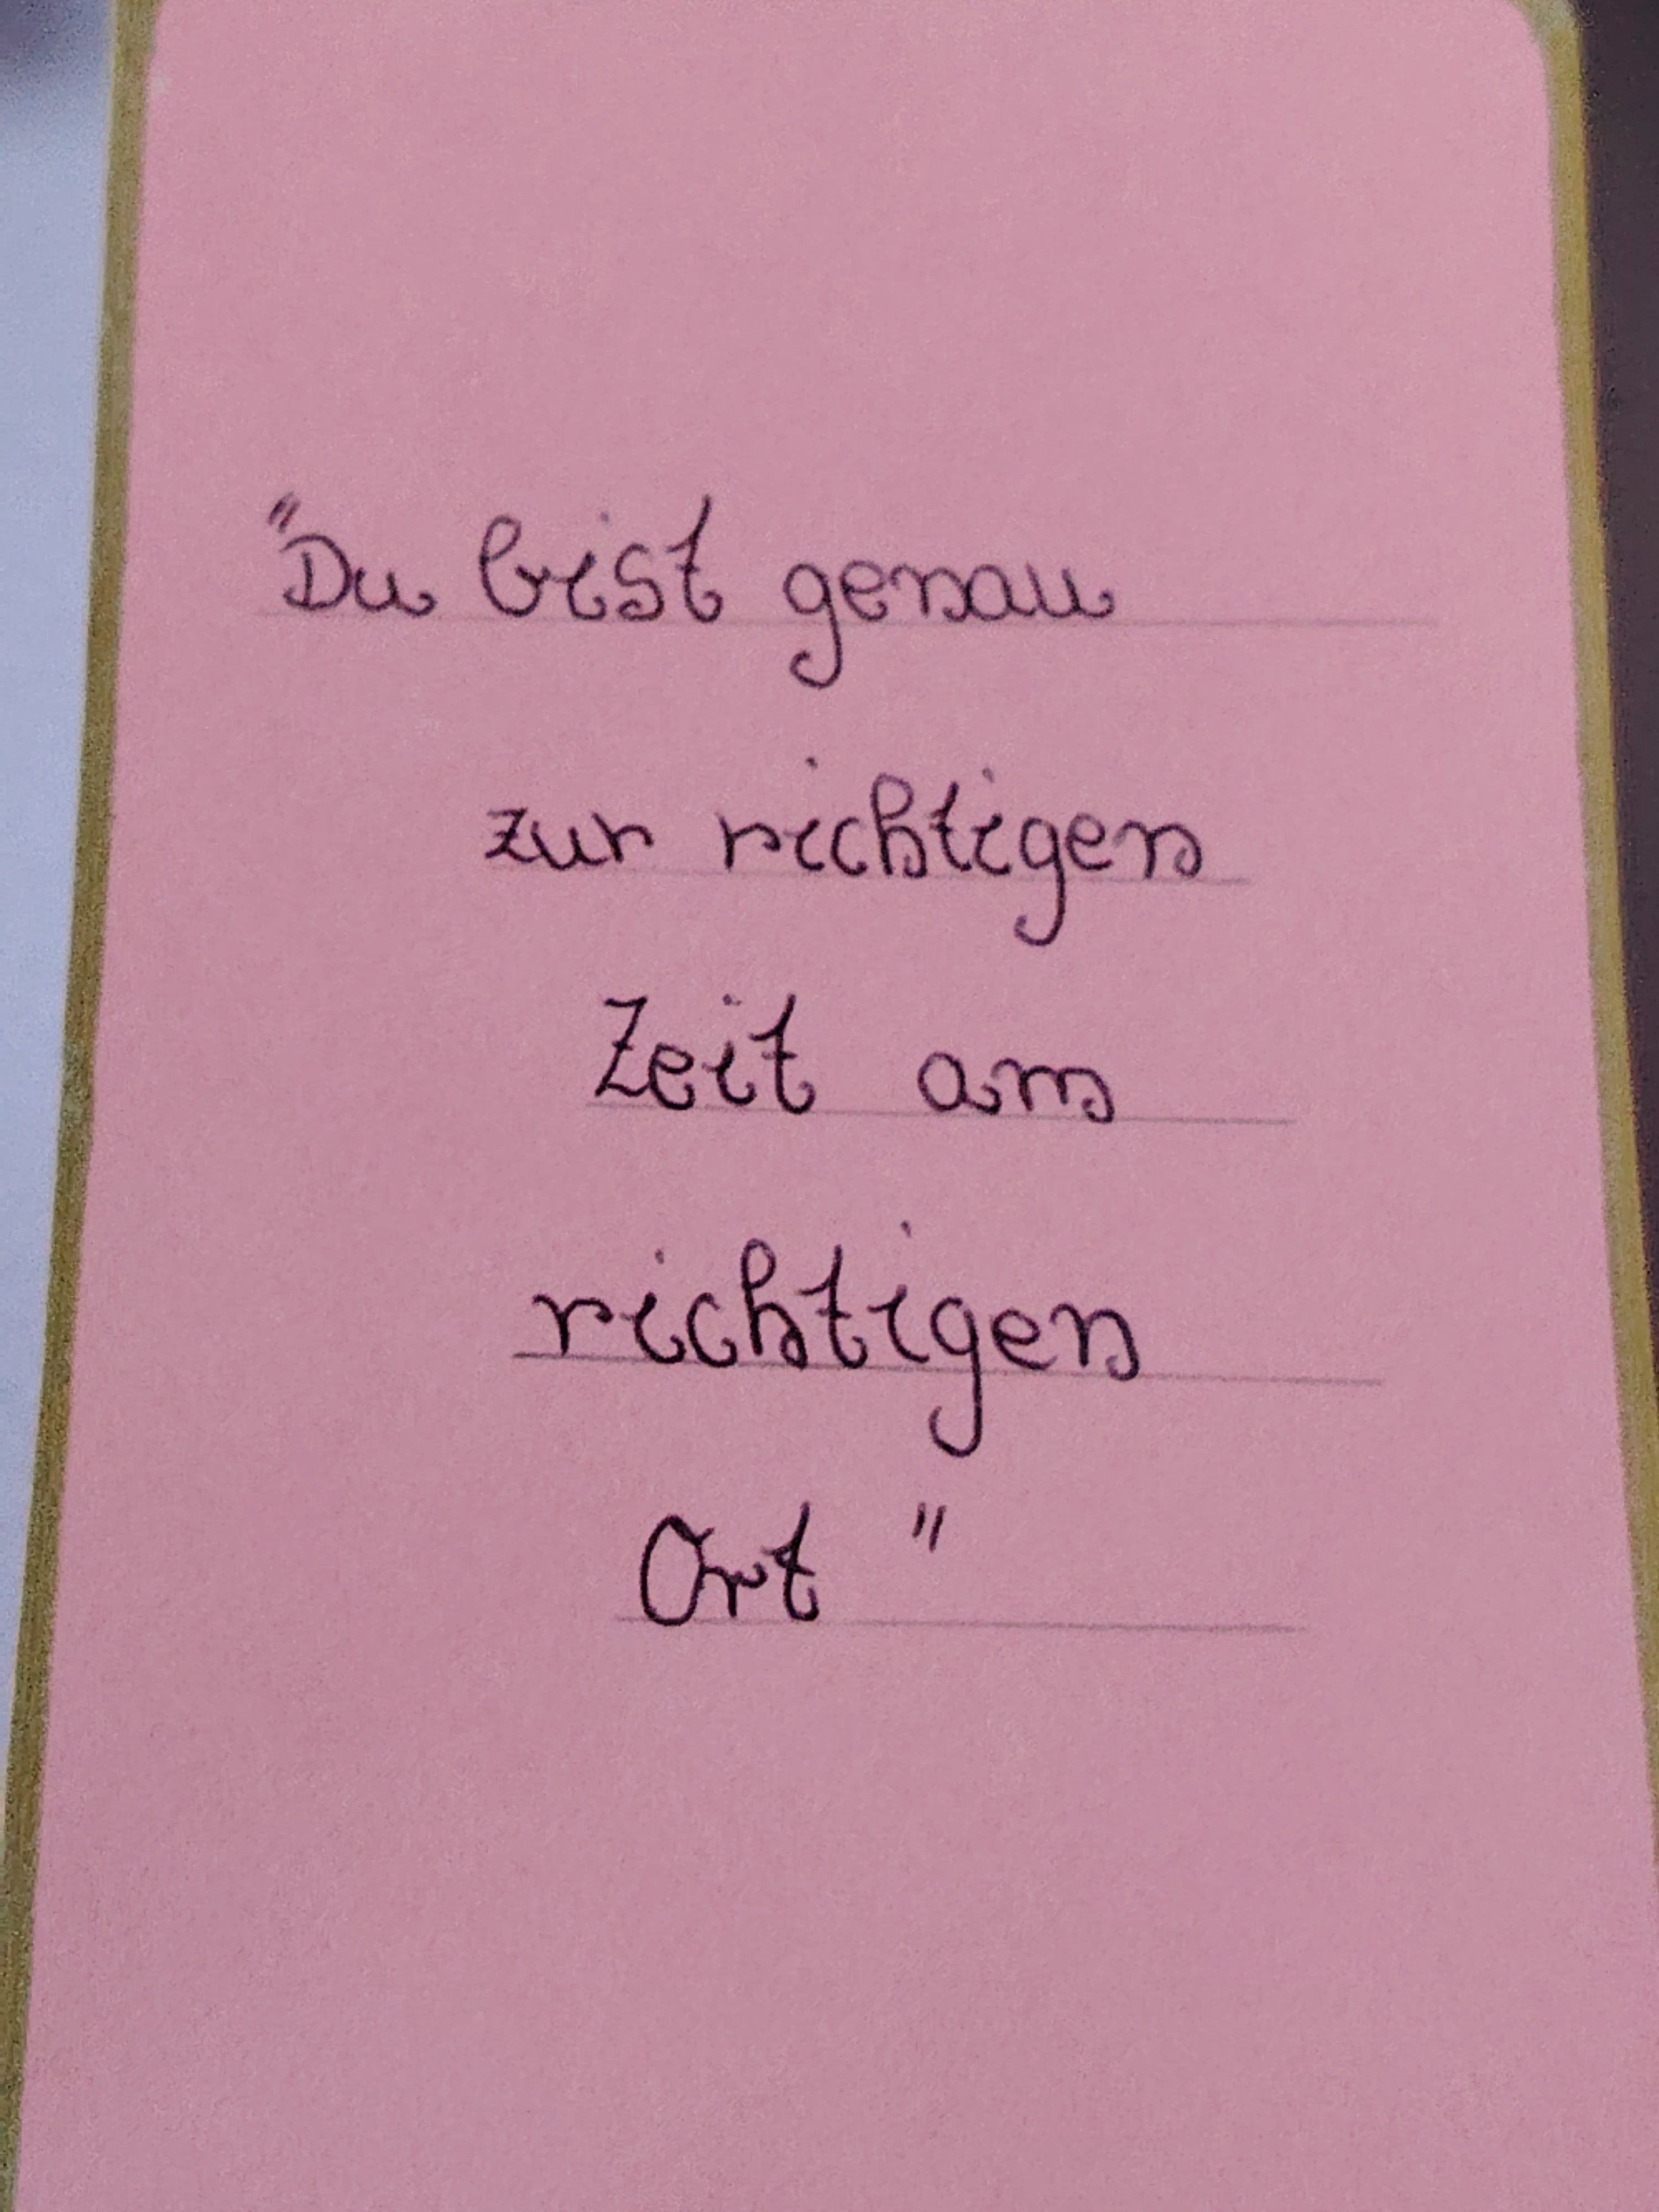 "Du bist genau
zur richtigen
Zeit am
richtigen
Ort "